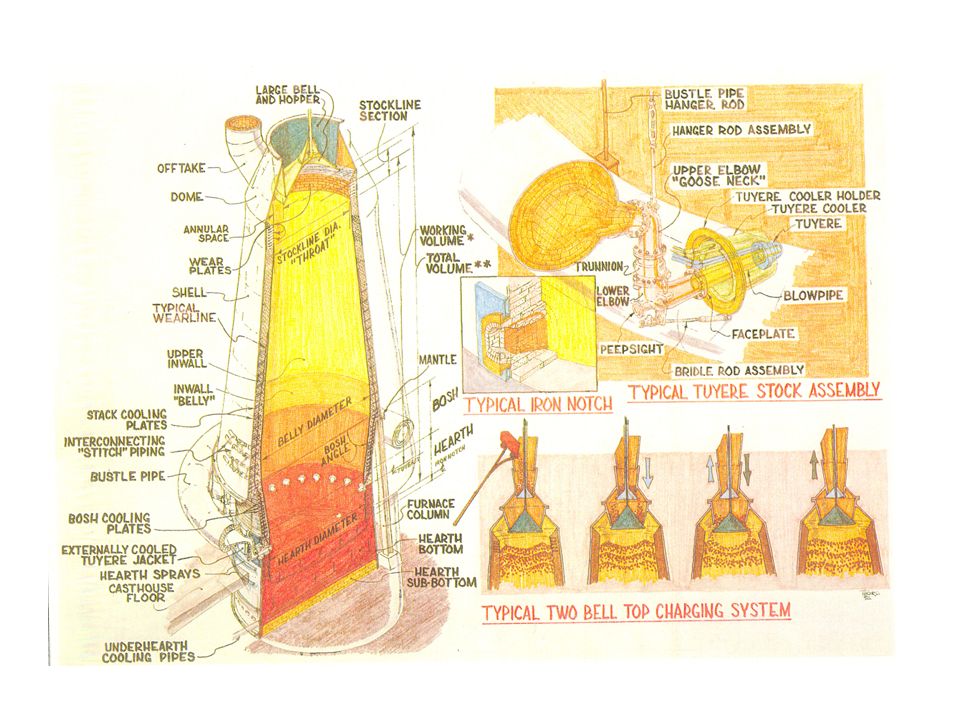 LARGE BELL
AND HOPPER
STOCKLINE
SECTION
OFFTAKE
DOME
ANNULAR
SPACE
WEAR
PLATES
SHELL
TYPICAL
WEARLINE
UPPER
INWALL
INWALL
"BELLY"
STACK COOLING
PLATES
INTERCONNECTING
"STITCH" PIPING
BUSTLE PIPE
BOSH COOLING
PLATES
EXTERNALLY COOLED
TUYERE JACKET
HEARTH SPRAYS
CASTHOUSE
FLOOR
UNDERHEARTH
COOLING PIPES
STOCKLINE DIA.
"THROAT"
BELLY DIAMETER
BOSH
ANGLE
HEARTH DIAMETER
WORKING
VOLUME*
TOTAL
VOLUME**
MANTLE
BOSH
HEARTH
℄ TUYERE
IRON NOTCH
FURNACE
COLUMN
HEARTH
BOTTOM
HEARTH
SUB-BOTTOM
BUSTLE PIPE
HANGER ROD
HANGER ROD ASSEMBLY
UPPER ELBOW
"GOOSE NECK"
TUYERE COOLER HOLDER
TUYERE COOLER
TUYERE
TRUNNION
LOWER
ELBOW
BLOWPIPE
FACEPLATE
PEEPSIGHT
BRIDLE ROD ASSEMBLY
TYPICAL IRON NOTCH
TYPICAL TUYERE STOCK ASSEMBLY
TYPICAL TWO BELL TOP CHARGING SYSTEM